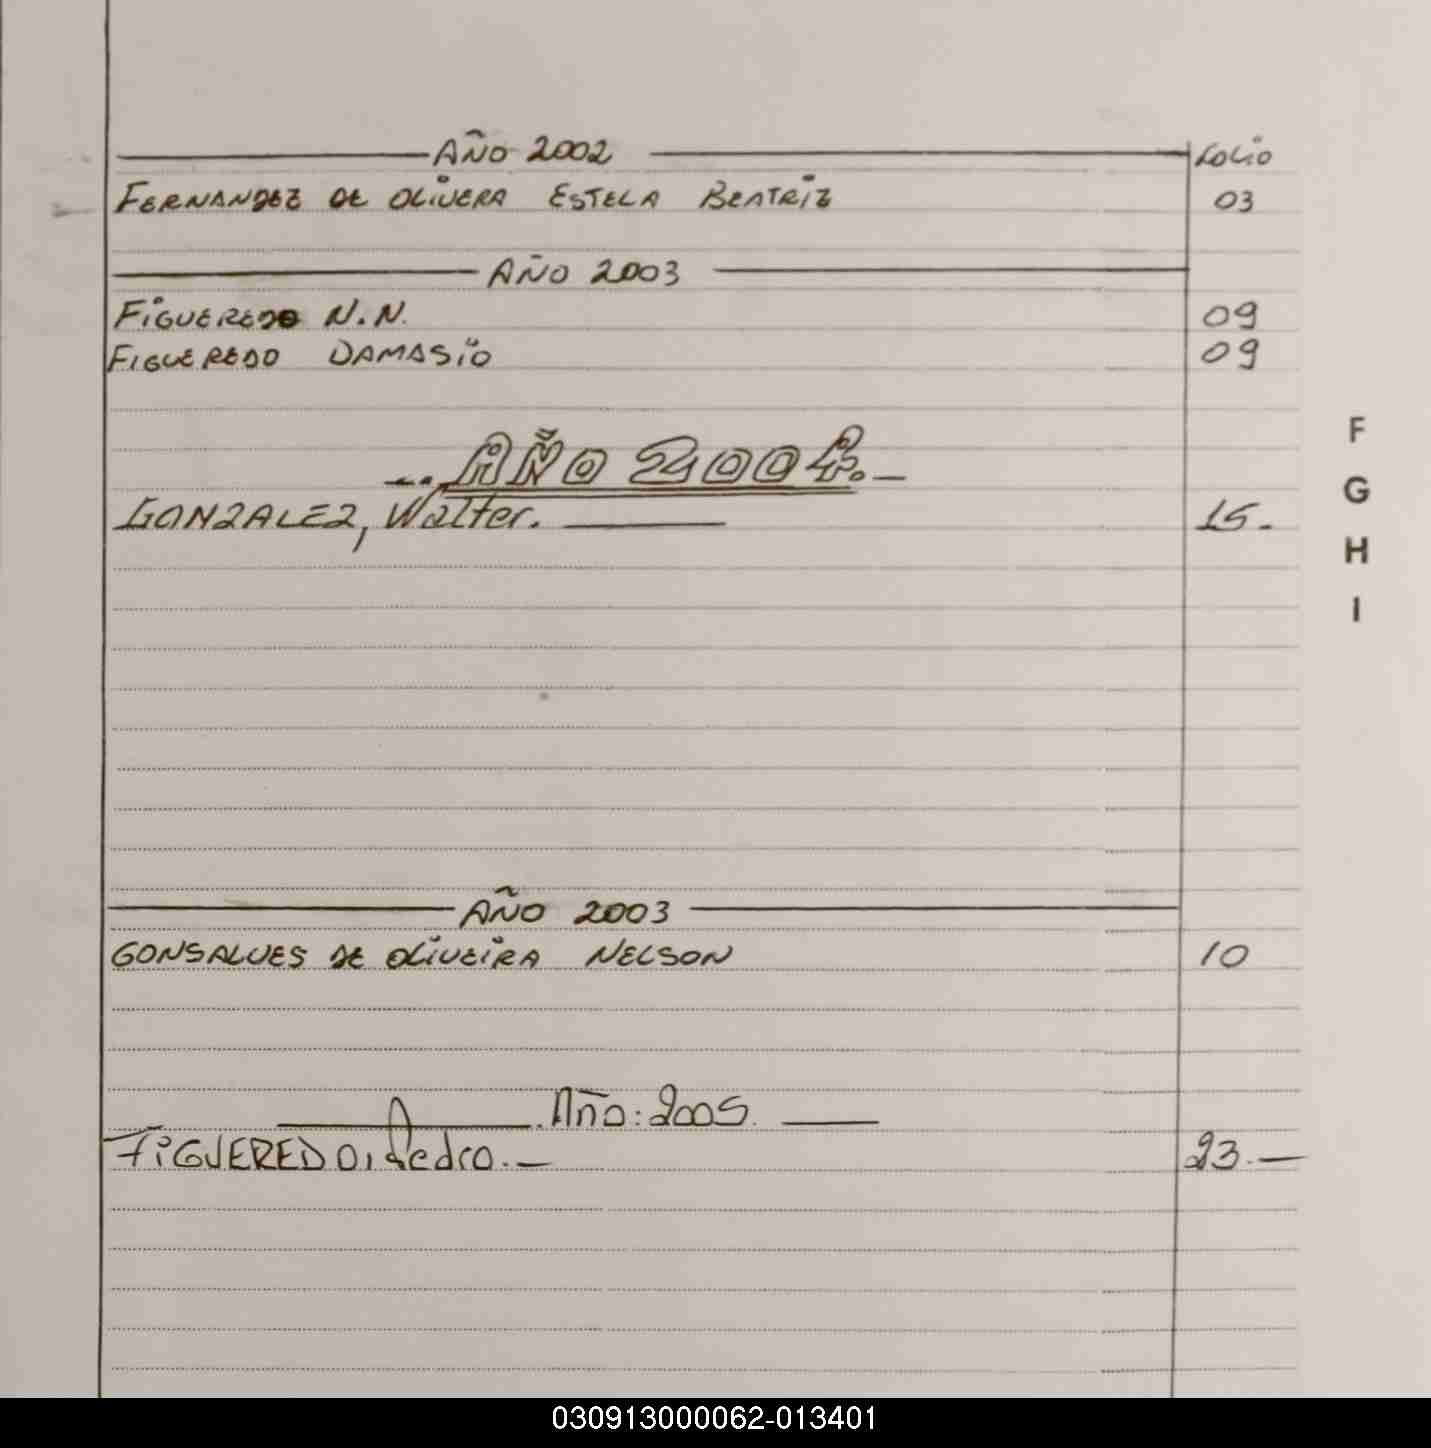 AÑO 2002 FOLIO
FERNANDEZ DE OLIVERA ESTELA BEATRIZ 03
AÑO 2003
FIGUEREDO N.N. 09
FIGUEREDO DAMASIO 09
AÑO 2004.
GONZALEZ, Walter. 15.
F
G
H
I
AÑO 2003
GONSALVES DE OLIVEIRA NELSON 10
Año: 2005.
FIGUEREDO, Pedro. 23.
030913000062-013401